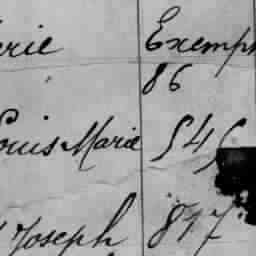 rie Exemp
86
Louis Marie 545
Joseph 847